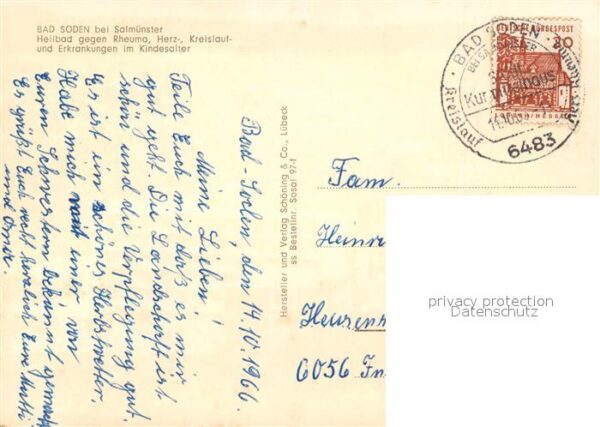 BAD SODEN bei Salmünster
Heilbad gegen Rheuma, Herz-, Kreislauf-
und Erkrankungen im Kindesalter
Bad-Soden, den 14.10.1966.
Meine Lieben!
Teile Euch mit daß es mir
gut geht. Die Landschaft ist
schön und die Verpflegung gut.
Es ist ein schönes Herbstwetter.
Habe mich mit einer von
Euren Schwestern bekannt gemacht
Es grüßt Euch recht herzlich Eure Mutti
und Oma.
Hersteller und Verlag Schöning & Co., Lübeck
ss Bestellnr. Sosal 97-1
BUNDESPOST
20
BAD SODEN
Kreislauf
6483
Fam.
Heinr
6056
privacy protection
Datenschutz